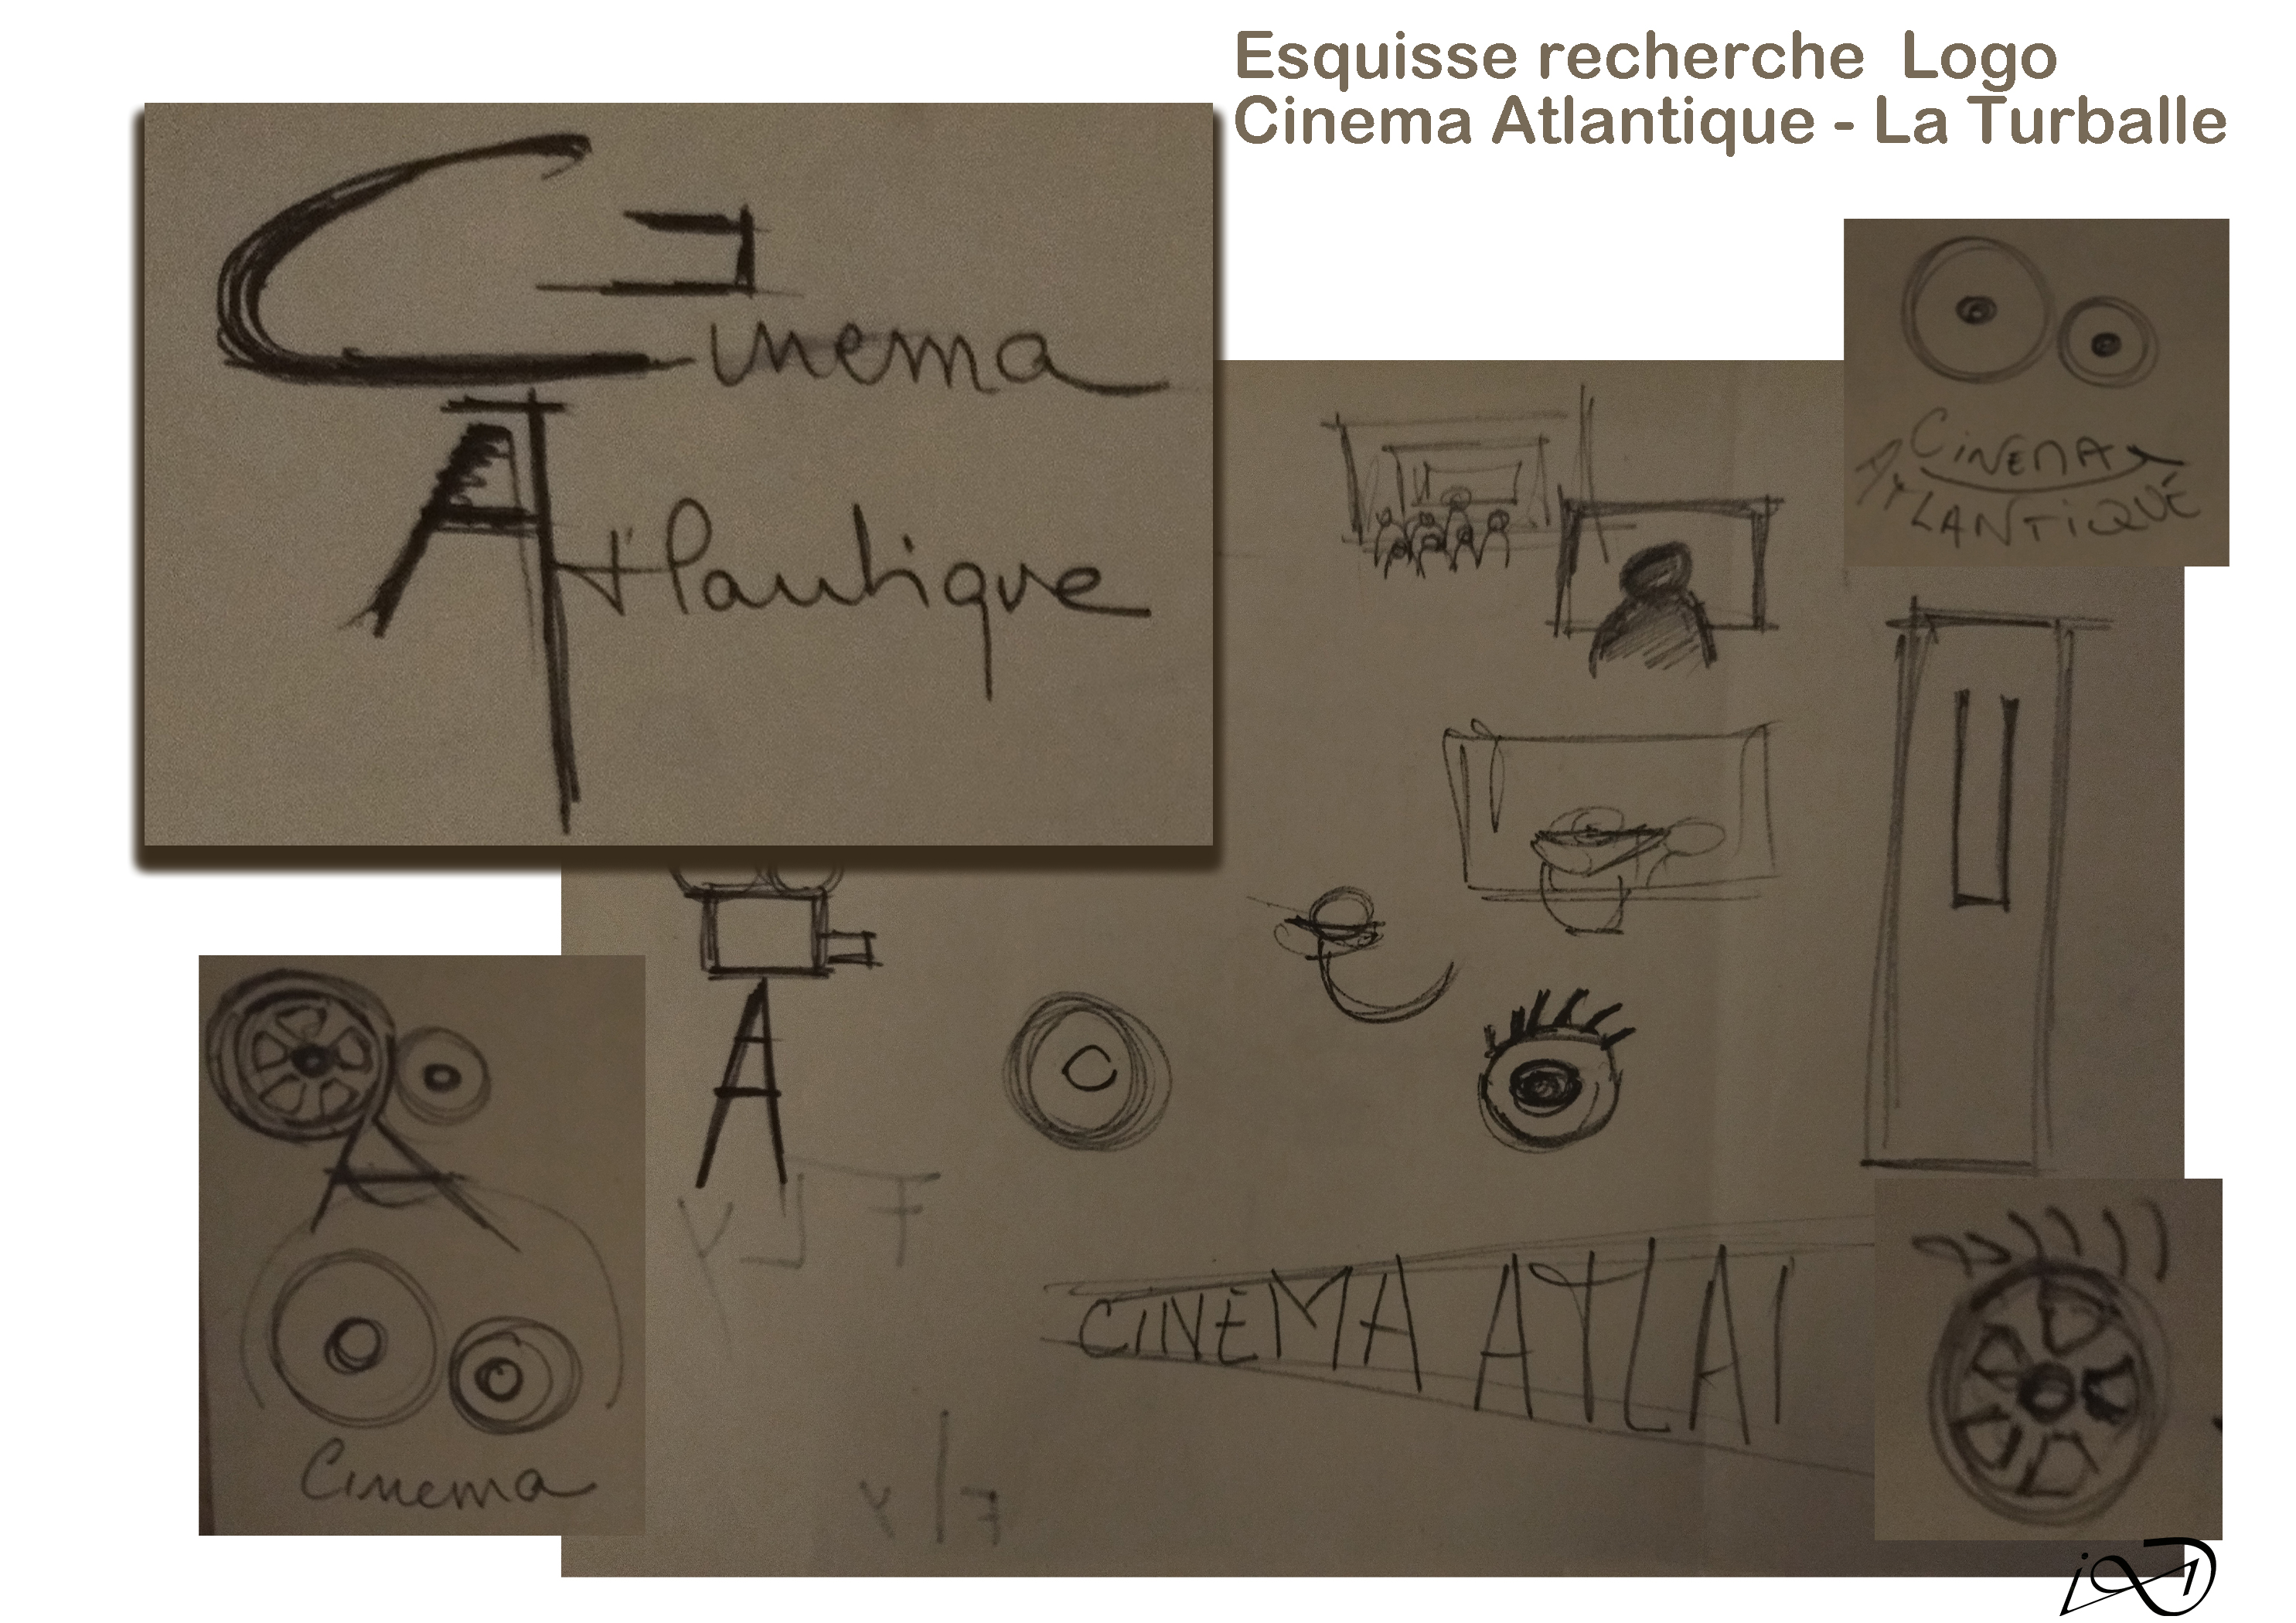 Esquisse recherche Logo
Cinema Atlantique - La Turballe
Cinema
Atlantique
CiNEMA
ATLANTiQUE
CINÉMA ATLAI
Cinema